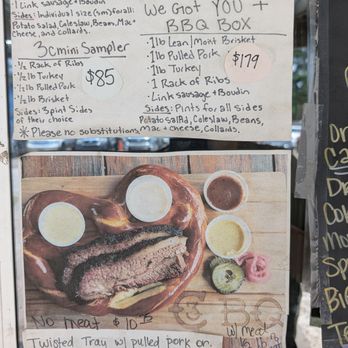 1 Link sausage + Boudin
Sides: Individual size (sm) for all:
Potato salad, Coleslaw, Beans, Mac +
Cheese, and collards.
3Cmini Sampler
• ½ Rack of Ribs
• ½ lb Turkey
• ½ lb Pulled Pork
• ½ lb Brisket
$85
Sides: 5pint Sides
of their choice
* Please no substitutions
We Got YOU +
BBQ BOX
• 1lb Lean/Moist Brisket
• 1lb Pulled Pork
• 1lb Turkey
• 1 Rack of Ribs
• Link Sausage + Boudin
$179
Sides: Pints for all sides
Potato salad, Coleslaw, Beans,
Mac + Cheese, Collards.
No meat $10
w/ meat
Twisted Tray w/ pulled pork or